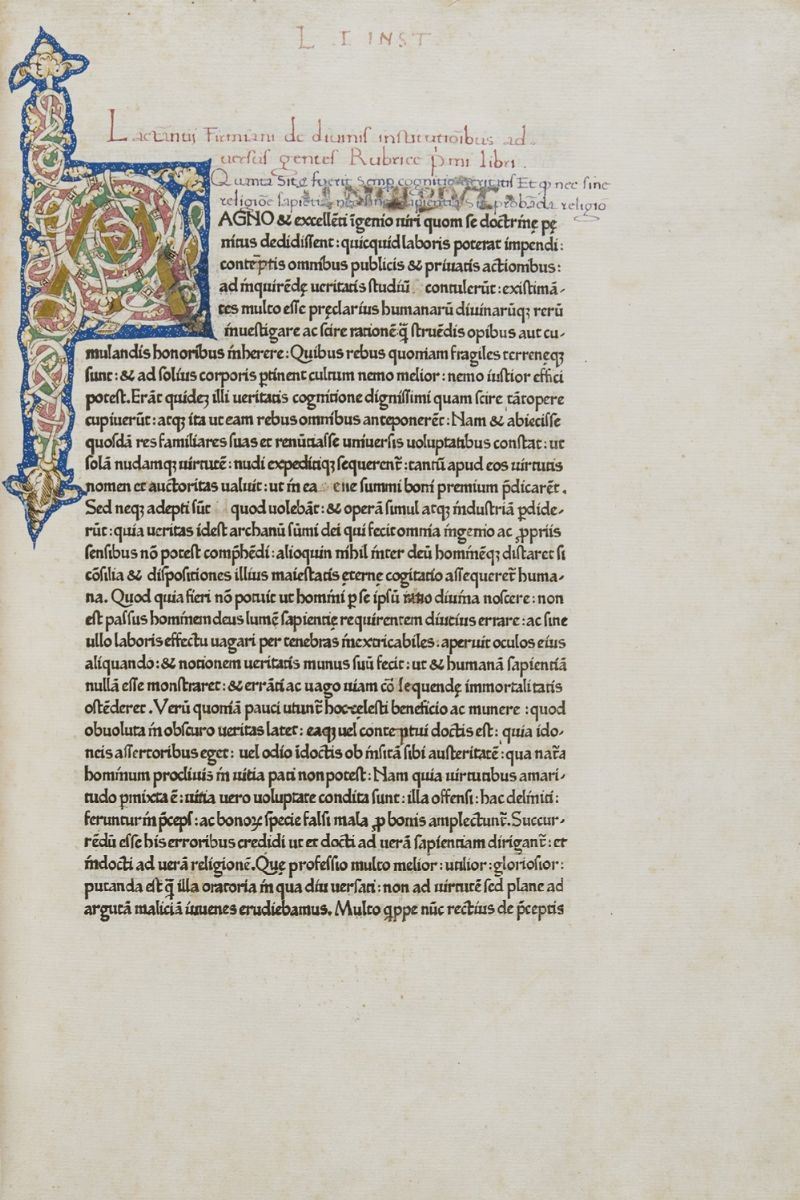 L I INST
Lactantij Firmiani de diuinis institutioibus ad
uersus gentes Rubrice pͥmi libri .
Quanta Sit et fuerit Semp cognitio ueritatis Et qͫ nec sine
religioe sapientia nec sine sapientia sit probāda religio
MAGNO & excellēti īgenio uiri quom se doctrinę pę
nitus dedidissent : quicquid laboris poterat impendi :
contēptis omnibus publicis & priuatis actionibus :
ad inquirēdę ueritatis studiū contulerūt : existimā-
tes multo esse pręclarius humanarū diuinarūqꝫ rerū
inuestigare ac scire rationē: q̄ struēdis opibus aut cu-
mulandis honoribus inherere : Quibus rebus quoniam fragiles terreneqꝫ
sunt : & ad solius corporis ꝑtinent cultum nemo melior : nemo iustior effici
potest. Erāt quideꝫ illi ueritatis cognitione dignissimi quam scire tātopere
cupiuerūt : atqꝫ ita ut eam rebus omnibus anteponerēt : Nam & abiecisse
quosdā res familiares suas et renūtiasse uniuersis uoluptatibus constat : ut
solā nudamqꝫ uirtutē : nudi expeditiqꝫ sequerent̄ : tantū apud eos uirtutis
nomen et auctoritas ualuit : ut in ea ene summi boni premium p̄dicarēt .
Sed neqꝫ adepti sūt quod uolebāt : & operā simul atqꝫ industriā ꝑdide-
rūt : quia ueritas idest archanū sūmi dei qui fecit omnia ingenio ac ꝓpriis
sensibus nō potest comp̄hēdi : alioquin nihil inter deū hominēqꝫ distaret si
cōsilia & dispositiones illius maiestatis ęternę cogitatio assequeret̄ huma-
na. Quod quia fieri nō potuit ut homini ꝑ se ipsū ratio diuina noscere : non
est passus hominem deus lumē sapientię requirentem diutius errare : ac sine
ullo laboris effectu uagari per tenebras inextricabiles . aperuit oculos eius
aliquando : & notionem ueritatis munus suū fecit : ut & humanā sapientiā
nullā esse monstraret : & errāti ac uago uiam cō sequendę immortalitatis
ostēderet . Verū quoniā pauci utunt̄ hoc celesti beneficio ac munere : quod
obuoluta in obscuro ueritas latet : eaqꝫ uel conteptui doctis est : quia ido-
neis assertoribus eget : uel odio īdoctis ob insitā sibi austeritatē : qua nat̄a
hominum procliuis in uitia pati non potest : Nam quia uirtutibus amari-
tudo ꝑmixta ē : uitia uero uoluptate condita sunt : illa offensi : hac deliniti :
feruntur in p̄ceps : ac bonoꝝ specie falsi mala ꝓ bonis amplectunt̄. Succur-
rēdū esse his erroribus credidi ut et docti ad uerā sapientiam dirigant̄ : et
indocti ad uerā religionē. Quę professio multo melior : utilior : gloriosior :
putanda est q̄ illa oratoria in qua diu uersati : non ad uirtutē sed plane ad
argutā maliciā iuuenes erudiebamus. Multo q̄ppe nūc rectius de p̄ceptis